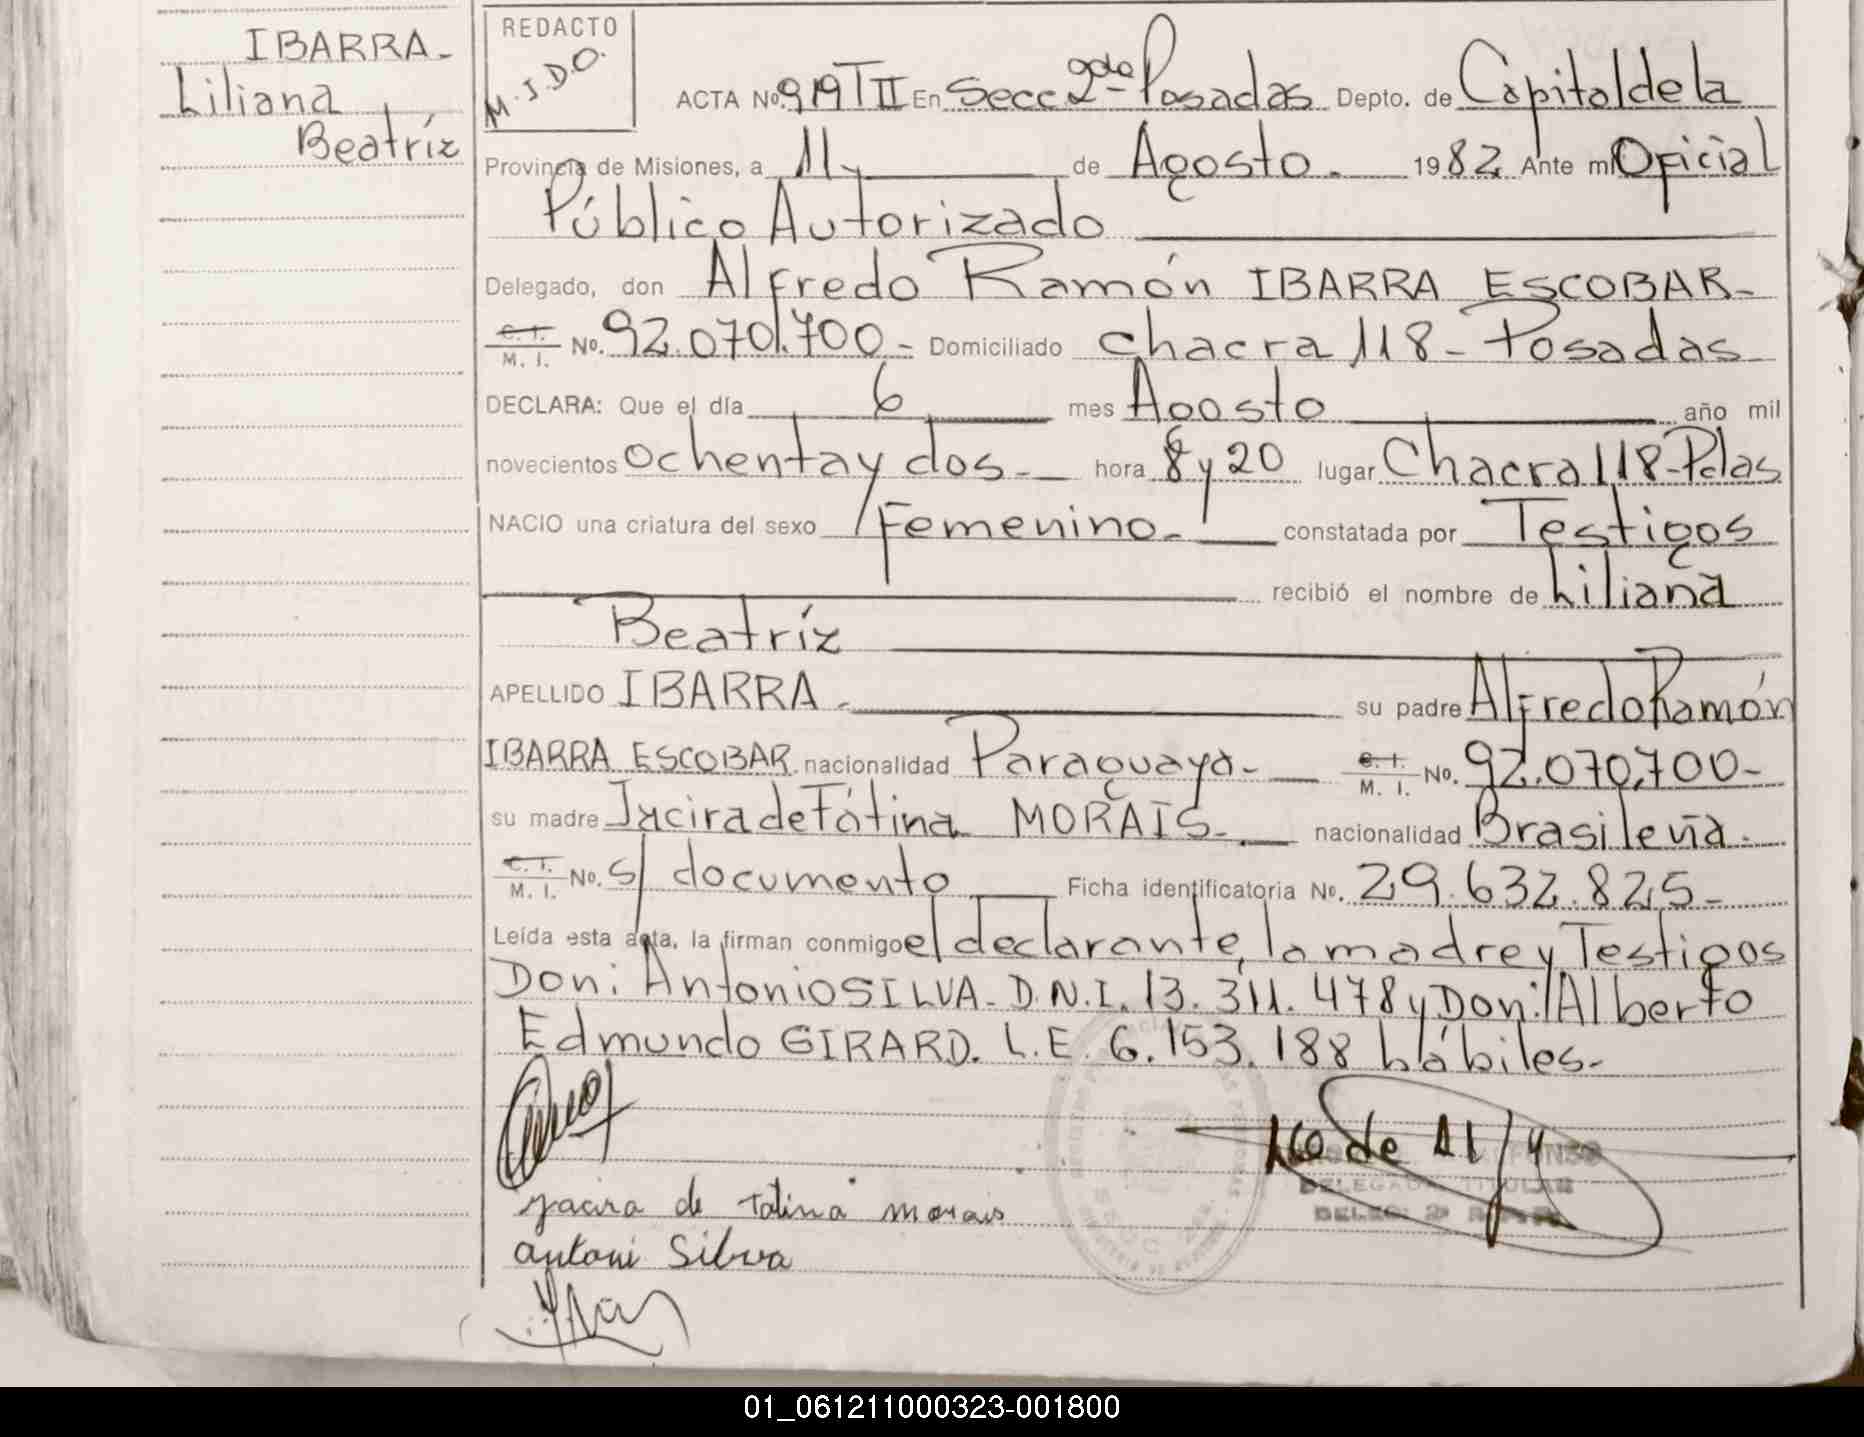 IBARRA-
Liliana
Beatríz
REDACTO
M.J.D.O.
ACTA No. 919 T II En Secc 2da- Posadas Depto. de Capital de la
Provincia de Misiones, a 11 de Agosto. 1982 Ante mi Oficial
Público Autorizado
Delegado, don Alfredo Ramón IBARRA ESCOBAR-
C. I. / M. I. No. 92.070.700- Domiciliado chacra 118- Posadas
DECLARA: Que el día 6 mes Agosto año mil
novecientos ochenta y dos- hora 8 y 20 lugar Chacra 118-Pdas
NACIO una criatura del sexo Femenino- constatada por Testigos
recibió el nombre de Liliana
Beatríz
APELLIDO IBARRA- su padre Alfredo Ramón
IBARRA ESCOBAR nacionalidad Paraguaya- C. I. / M. I. No. 92.070.700-
su madre Jacira de Fátina MORAIS- nacionalidad Brasileña-
C. I. / M. I. No. S/ documento Ficha identificatoria No. 29.632.825-
Leída esta acta, la firman conmigo el declarante, la madre y Testigos
Don: Antonio SILVA- D.N.I. 13.311.478 y Don: Alberto
Edmundo GIRARD. L.E. 6.153.188 hábiles-
DELEGADA TITULAR
jacira de Fatina morais
antoni Silva
01_061211000323-001800